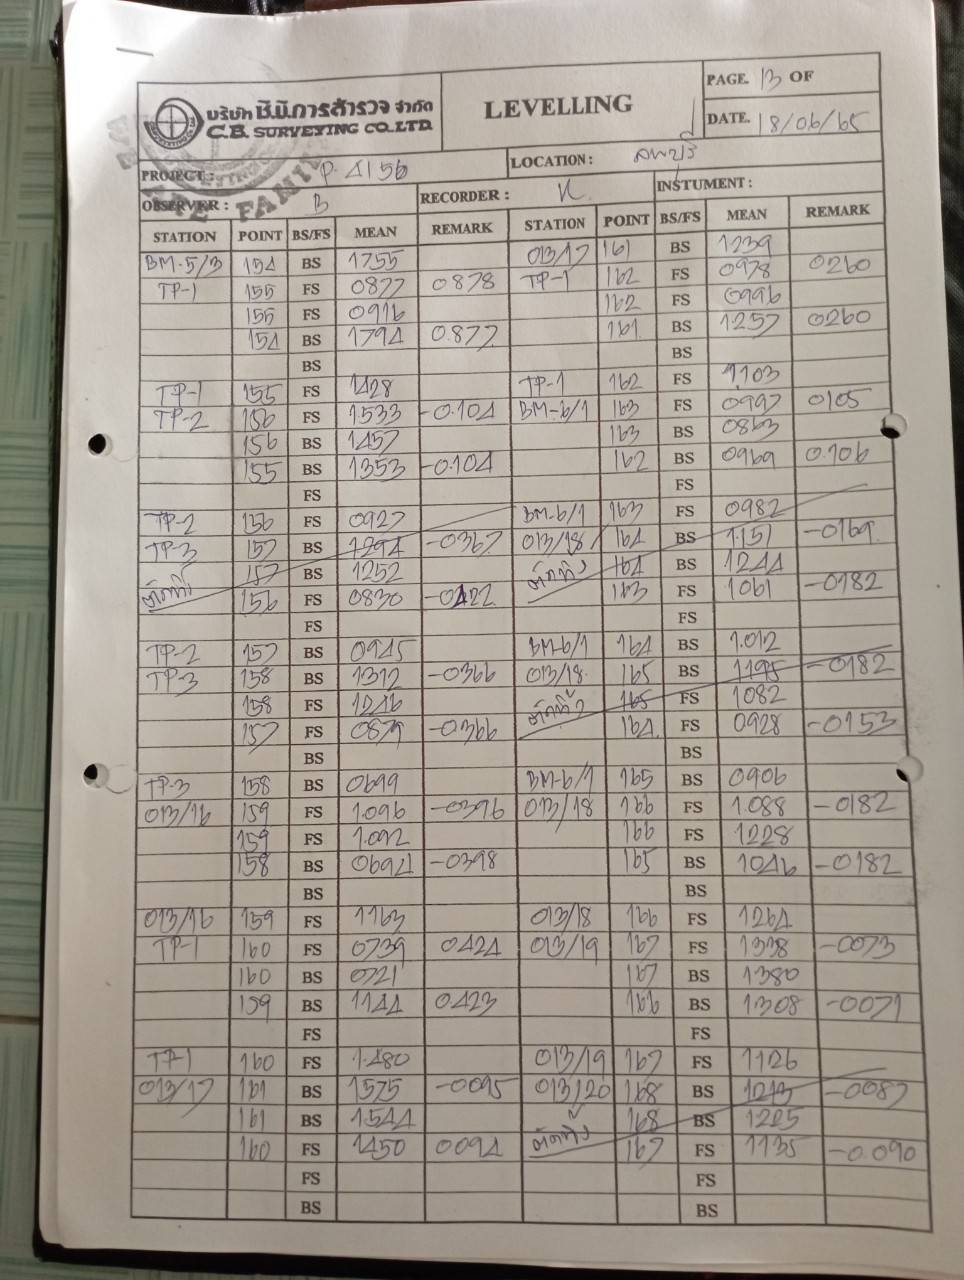 บริษัท ซี.บี.การสำรวจ จำกัด
C.B. SURVEYING CO.,LTD.
LEVELLING
PAGE. 13 OF
DATE. 18/06/65
PROJECT : P. 4156
LOCATION : ลพบุรี
OBSERVER : B
RECORDER : K.
INSTUMENT :
STATION POINT BS/FS MEAN REMARK STATION POINT BS/FS MEAN REMARK
BM-5/3 154 BS 1755 013/17 161 BS 1239
TP-1 155 FS 0877 0878 TP-1 162 FS 0978 0260
155 FS 0916 162 FS 0996
154 BS 1794 0.877 161 BS 1257 0260
BS BS
TP-1 155 FS 1428 TP-1 162 FS 1103
TP-2 156 FS 1533 -0.104 BM-6/1 163 FS 0997 0105
156 BS 1457 163 BS 0863
155 BS 1353 -0.104 162 BS 0969 0.106
FS FS
TP-2 156 FS 0927 BM-6/1 163 FS 0982
TP-3 157 BS 1294 -0367 013/18 164 BS 1.151 -0169
157 BS 1252 ตัดทิ้ง 164 BS 1244
ตัดทิ้ง 156 FS 0830 -0422 163 FS 1061 -0182
FS FS
TP-2 157 BS 0945 BM-6/1 164 BS 1.012
TP-3 158 BS 1312 -0366 013/18 165 BS 1195 -0182
158 FS 1246 ตัดทิ้ง 165 FS 1082
157 FS 0879 -0366 164 FS 0928 -0153
BS BS
TP-3 158 BS 0699 BM-6/1 165 BS 0906
013/16 159 FS 1.096 -0396 013/18 166 FS 1.088 -0182
159 FS 1.092 166 FS 1228
158 BS 0694 -0398 165 BS 1046 -0182
BS BS
013/16 159 FS 1163 013/18 166 FS 1264
TP-1 160 FS 0739 0424 013/19 167 FS 1338 -0073
160 BS 0721 167 BS 1380
159 BS 1144 0423 166 BS 1308 -0071
FS FS
TP-1 160 FS 1.480 013/19 167 FS 1126
013/17 161 BS 1575 -0095 013/20 168 BS 1213 -0087
161 BS 1544 ตัดทิ้ง 168 BS 1225
160 FS 1450 0094 167 FS 1135 -0.090
FS FS
BS BS